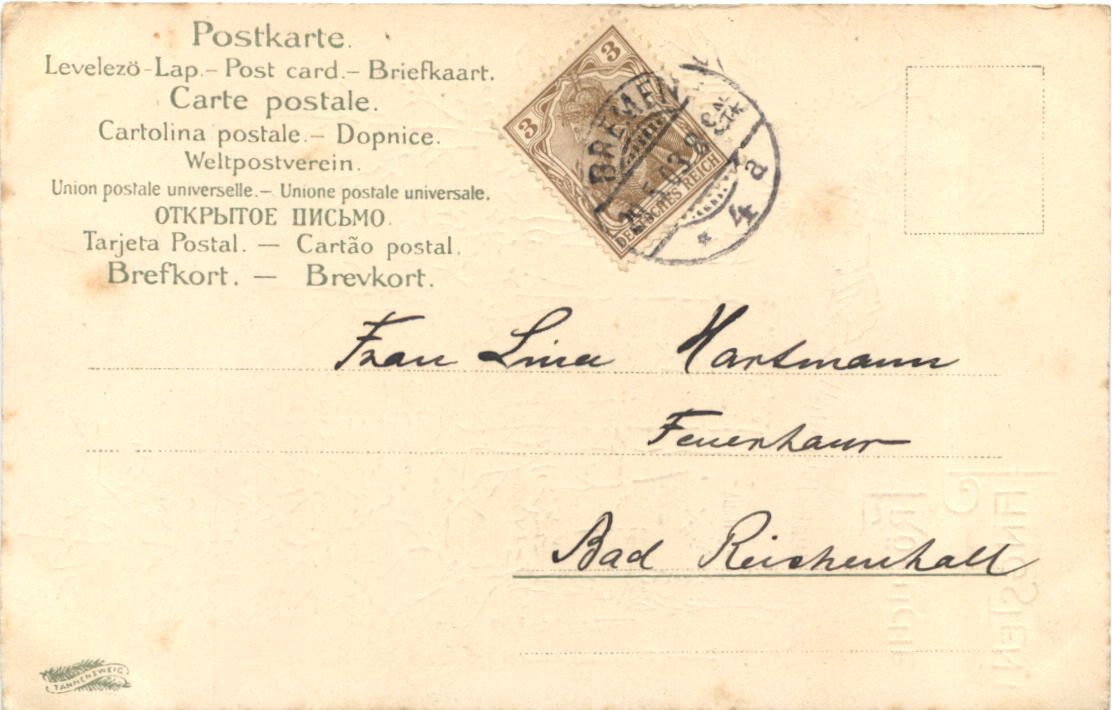 Postkarte.
Levelező-Lap.- Post card.- Briefkaart.
Carte postale.
Cartolina postale.- Dopnice.
Weltpostverein.
Union postale universelle.- Unione postale universale.
ОТКРЫТОЕ ПИСЬМО.
Tarjeta Postal. — Cartão postal.
Brefkort. — Brevkort.
3
3
DEUTSCHES REICH
BREMEN
5.03.8-9
* 4 a
Frau Lina Hartmann
Feuerhaus
Bad Reichenhall
TANNENZWEIG